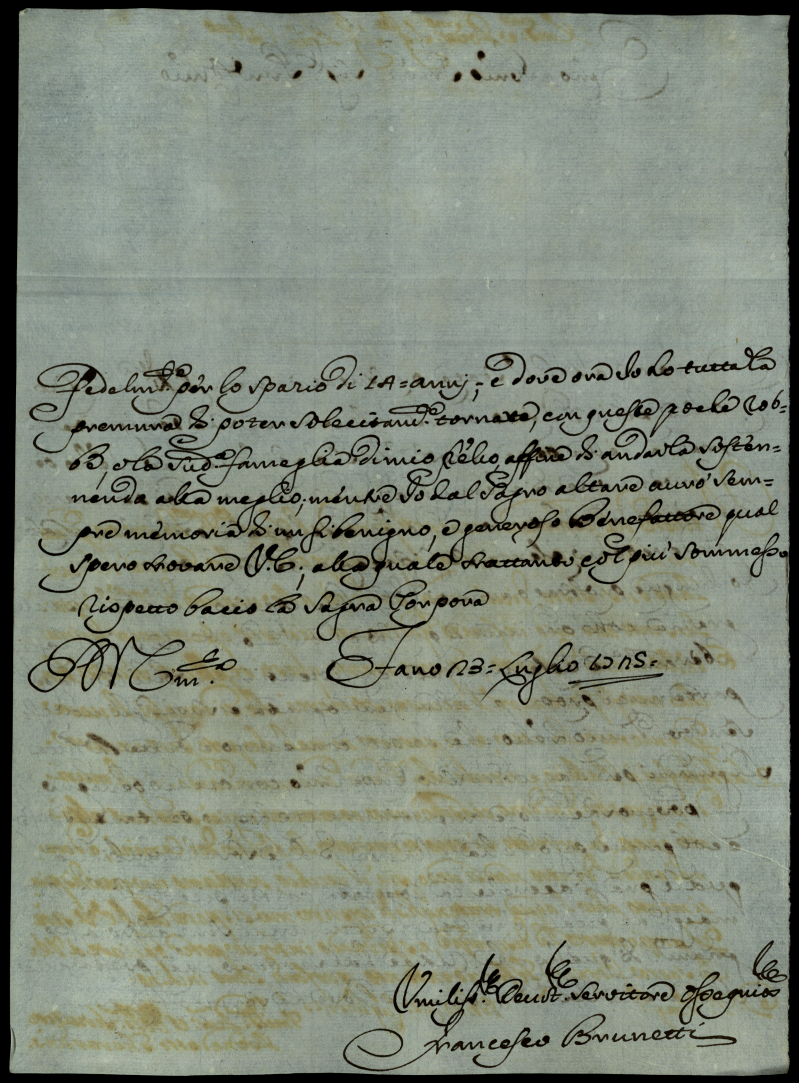 Fedelm.te per lo spazio di 14= anni; e dove ora Io ho tutta la
premura di poter solecitam.te tornare, con queste poche rob=
be, e la sud.a fameglia di mio affine di andarla sosten=
nenda alla meglio; mentre Io dal Sagro altare avrò sem=
pre memoria di un si benigno, e generoso benefattore qual
spero trovare V. E; alla quale trattanto, col più sommesso
rispetto bacio la Sagra Porpora
Fano 23= Luglio
Umiliss.o Devot.o Servitore Ossequios.o
Francesco Brunetti